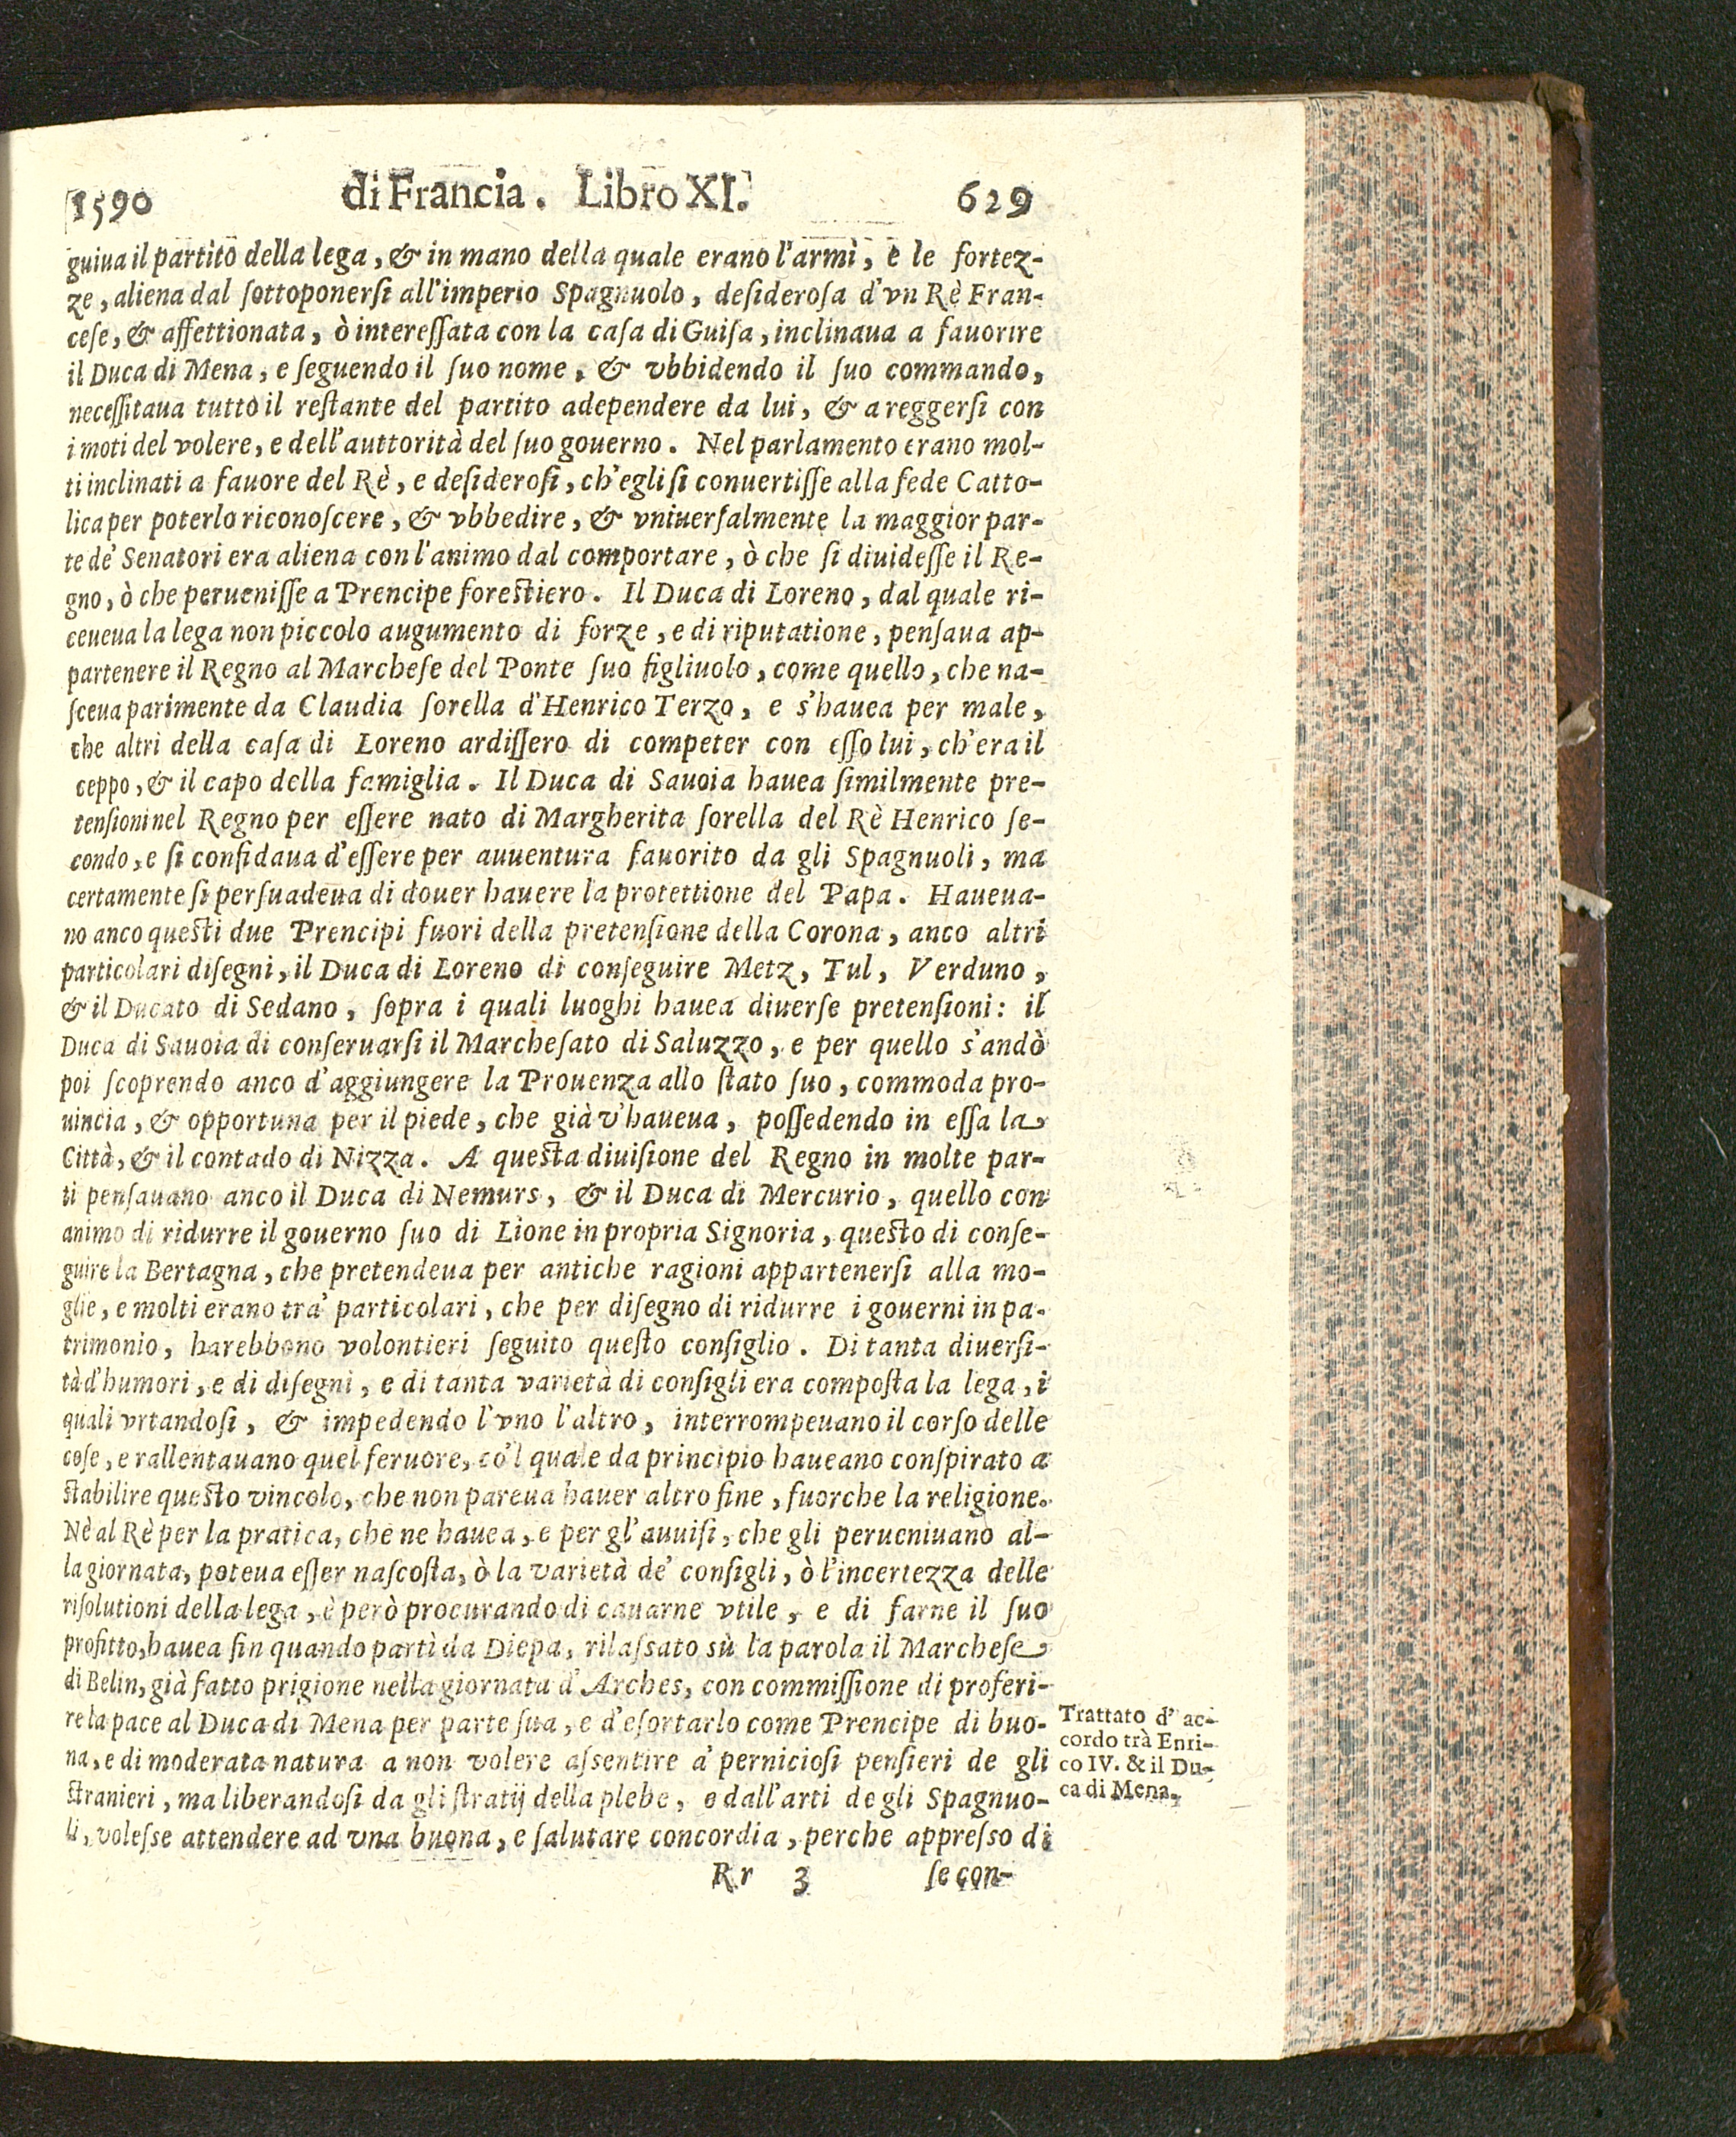 1590 di Francia. Libro XI. 629
guiua il partito della lega, & in mano della quale erano l'armi, e le fortez-
ze, aliena dal sottoponersi all'imperio Spagnuolo, desiderosa d'vn Rè Fran-
cese, & affettionata, ò interessata con la casa di Guisa, inclinaua a fauorire
il Duca di Mena, e seguendo il suo nome, & vbbidendo il suo commando,
necessitaua tutto il restante del partito adependere da lui, & a reggersi con
i moti del volere, e dell'auttorità del suo gouerno. Nel parlamento erano mol-
ti inclinati a fauore del Rè, e desiderosi, ch'egli si conuertisse alla fede Catto-
lica per poterlo riconoscere, & vbbedire, & vniuersalmente la maggior par-
te de' Senatori era aliena con l'animo dal comportare, ò che si diuidesse il Re-
gno, ò che peruenisse a Prencipe forestiero. Il Duca di Loreno, dal quale ri-
ceueua la lega non piccolo augumento di forze, e di riputatione, pensaua ap-
partenere il Regno al Marchese del Ponte suo figliuolo, come quello, che na-
sceua parimente da Claudia sorella d'Henrico Terzo, e s'hauea per male,
che altri della casa di Loreno ardissero di competer con esso lui, ch'era il
ceppo, & il capo della famiglia. Il Duca di Sauoia hauea similmente pre-
tensioni nel Regno per essere nato di Margherita sorella del Rè Henrico se-
condo, e si confidaua d'essere per auuentura fauorito da gli Spagnuoli, ma
certamente si persuadeua di douer hauere la protettione del Papa. Haueua-
no anco questi due Prencipi fuori della pretensione della Corona, anco altri
particolari disegni, il Duca di Loreno di conseguire Metz, Tul, Verduno,
& il Ducato di Sedano, sopra i quali luoghi hauea diuerse pretensioni: il
Duca di Sauoia di conseruarsi il Marchesato di Saluzzo, e per quello s'andò
poi scoprendo anco d'aggiungere la Prouenza allo stato suo, commoda pro-
uincia, & opportuna per il piede, che già v'haueua, possedendo in essa la
Città, & il contado di Nizza. A questa diuisione del Regno in molte par-
ti pensauano anco il Duca di Nemurs, & il Duca di Mercurio, quello con
animo di ridurre il gouerno suo di Lione in propria Signoria, questo di conse-
guire la Bertagna, che pretendeua per antiche ragioni appartenersi alla mo-
glie, e molti erano tra' particolari, che per disegno di ridurre i gouerni in pa-
trimonio, harebbono volontieri seguito questo consiglio. Di tanta diuersi-
tà d'humori, e di disegni, e di tanta varietà di consigli era composta la lega, i
quali vrtandosi, & impedendo l'vno l'altro, interrompeuano il corso delle
cose, e rallentauano quel feruore, co'l quale da principio haueano conspirato a
stabilire questo vincolo, che non pareua hauer altro fine, fuorche la religione.
Nè al Rè per la pratica, che ne hauea, e per gl'auuisi, che gli perueniuano al-
la giornata, poteua esser nascosta, ò la varietà de' consigli, ò l'incertezza delle
risolutioni della lega, è però procurando di cauarne vtile, e di farne il suo
profitto, hauea fin quando partì da Diepa, rilassato sù la parola il Marchese
di Belin, già fatto prigione nella giornata d'Arches, con commissione di proferi-
re la pace al Duca di Mena per parte sua, e d'esortarlo come Prencipe di buo-
na, e di moderata natura a non volere assentire a' perniciosi pensieri de gli
stranieri, ma liberandosi da gli stratij della plebe, e dall'arti de gli Spagnuo-
li, volesse attendere ad vna buona, e salutare concordia, perche appresso di
Trattato d' ac-
cordo trà Enri-
co IV. & il Du-
ca di Mena.
Rr 3 se con-